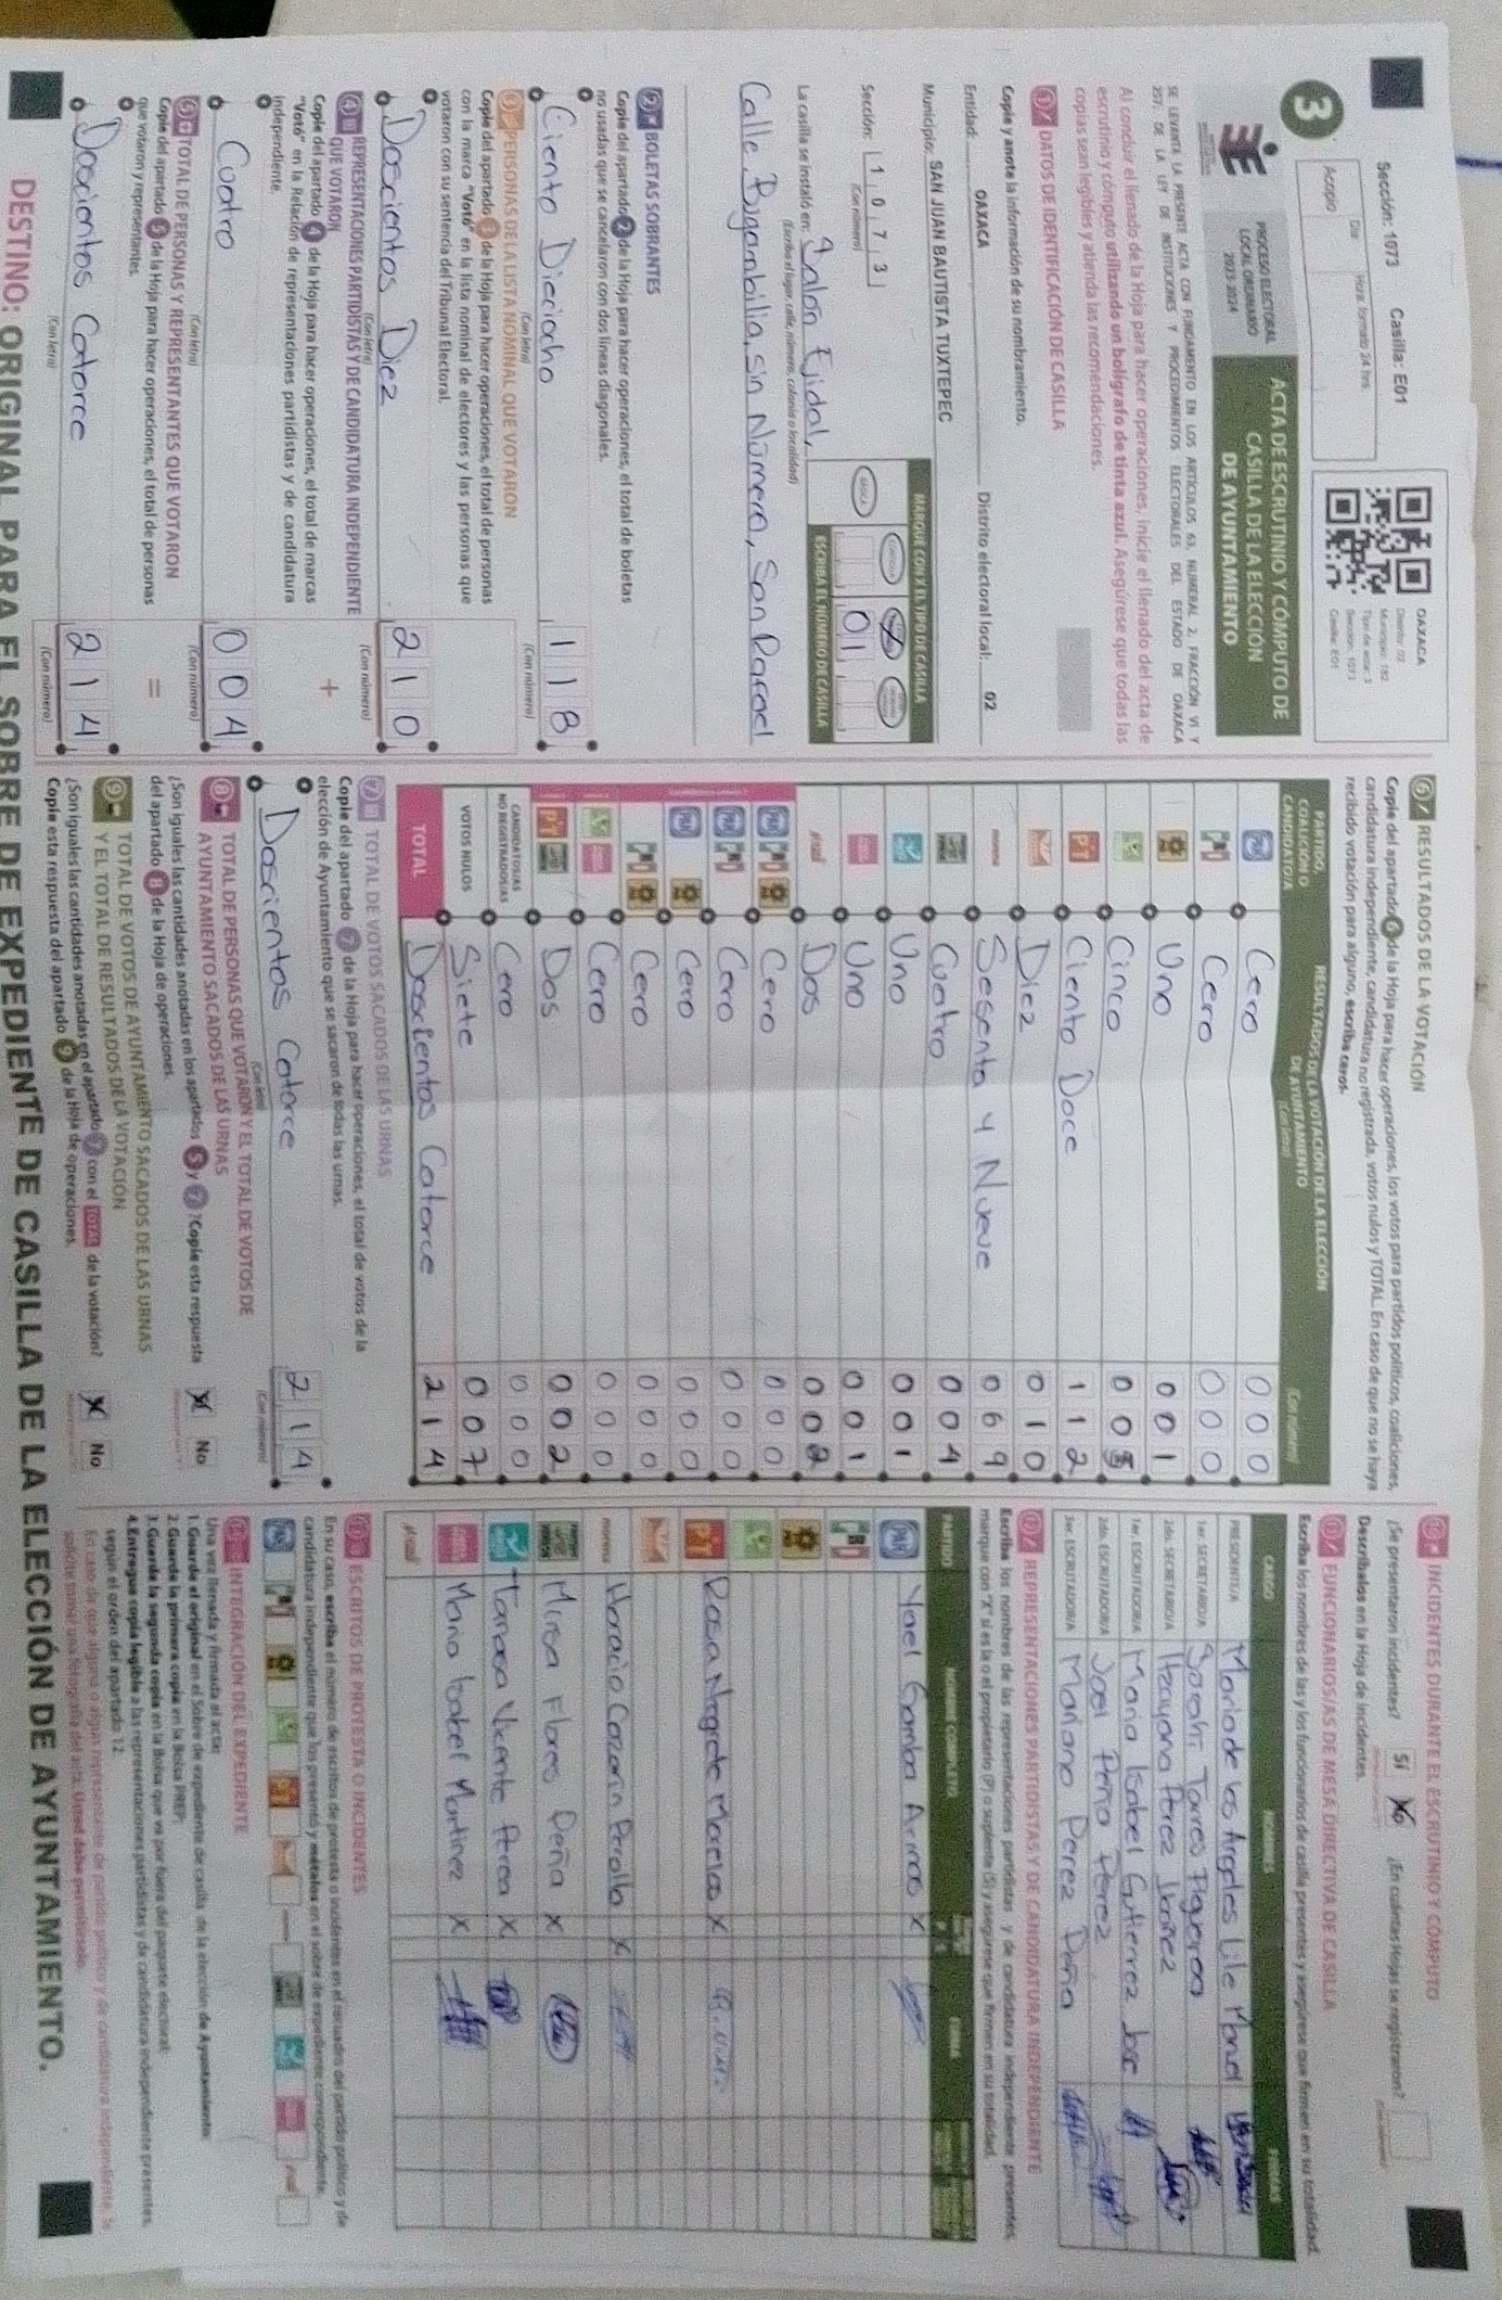 Sección: 1073 Casilla: E01
Acopio
Día Hora: formato 24 hrs.
OAXACA
Distrito: 02
Municipio: 182
Sección: 1073
Casilla: E01
3
PROCESO ELECTORAL
LOCAL ORDINARIO
2023-2024
ACTA DE ESCRUTINIO Y CÓMPUTO DE
CASILLA DE LA ELECCIÓN
DE AYUNTAMIENTO
SE LEVANTA LA PRESENTE ACTA CON FUNDAMENTO EN LOS ARTÍCULOS 63, NUMERAL 2, FRACCIÓN VI Y
257, DE LA LEY DE INSTITUCIONES Y PROCEDIMIENTOS ELECTORALES DEL ESTADO DE OAXACA
Al concluir el llenado de la Hoja para hacer operaciones, inicie el llenado del acta de
escrutinio y cómputo utilizando un bolígrafo de tinta azul. Asegúrese que todas las
copias sean legibles y atienda las recomendaciones.
1 DATOS DE IDENTIFICACIÓN DE CASILLA
Copie y anote la información de su nombramiento.
Entidad: OAXACA Distrito electoral local: 02
Municipio: SAN JUAN BAUTISTA TUXTEPEC
Sección: 1 0 7 3
(Con número)
MARQUE CON X EL TIPO DE CASILLA
BÁSICA
01
ESCRIBA EL NÚMERO DE CASILLA
La casilla se instaló en: Salón Ejidal,
(Escriba el lugar, calle, número, colonia o localidad)
Calle, Bugambilia, sin Número, San Rafael
2 BOLETAS SOBRANTES
Copie del apartado 2 de la Hoja para hacer operaciones, el total de boletas
no usadas que se cancelaron con dos líneas diagonales.
Ciento Dieciocho 118
(Con letra) (Con número)
3 PERSONAS DE LA LISTA NOMINAL QUE VOTARON
Copie del apartado 3 de la Hoja para hacer operaciones, el total de personas
con la marca "Votó" en la lista nominal de electores y las personas que
votaron con su sentencia del Tribunal Electoral.
Doscientos Diez 210
(Con letra) (Con número)
4 REPRESENTACIONES PARTIDISTAS Y DE CANDIDATURA INDEPENDIENTE
QUE VOTARON
Copie del apartado 4 de la Hoja para hacer operaciones, el total de marcas
"Votó" en la Relación de representaciones partidistas y de candidatura
independiente.
+
Cuatro 004
(Con letra) (Con número)
5 TOTAL DE PERSONAS Y REPRESENTANTES QUE VOTARON
Copie del apartado 5 de la Hoja para hacer operaciones, el total de personas
que votaron y representantes.
=
Doscientos Catorce 214
(Con letra) (Con número)
6 RESULTADOS DE LA VOTACIÓN
Copie del apartado 6 de la Hoja para hacer operaciones, los votos para partidos políticos, coaliciones,
candidatura independiente, candidatura no registrada, votos nulos y TOTAL. En caso de que no se haya
recibido votación para alguno, escriba ceros.
PARTIDO,
COALICIÓN O
CANDIDATO/A
RESULTADOS DE LA VOTACIÓN DE LA ELECCIÓN
DE AYUNTAMIENTO
(Con letra) (Con número)
PAN Cero 000
PRI Cero 000
PRD Uno 001
Cinco 005
PT Ciento Doce 112
Diez 010
morena Sesenta y Nueve 069
Cuatro 004
Uno 001
Uno 001
Dos 002
PAN PRI PRD Cero 000
PAN PRI Cero 000
PAN PRD Cero 000
PRI PRD Cero 000
Cero 000
PT Dos 002
CANDIDATOS/AS
NO REGISTRADOS/AS Cero 000
VOTOS NULOS Siete 007
TOTAL Doscientos Catorce 214
7 TOTAL DE VOTOS SACADOS DE LAS URNAS
Copie del apartado 7 de la Hoja para hacer operaciones, el total de votos de la
elección de Ayuntamiento que se sacaron de todas las urnas.
Doscientos Catorce 214
(Con letra) (Con número)
8 TOTAL DE PERSONAS QUE VOTARON Y EL TOTAL DE VOTOS DE
AYUNTAMIENTO SACADOS DE LAS URNAS
¿Son iguales las cantidades anotadas en los apartados 5 y 7? Copie esta respuesta
del apartado 8 de la Hoja de operaciones.
X No
9 TOTAL DE VOTOS DE AYUNTAMIENTO SACADOS DE LAS URNAS
Y EL TOTAL DE RESULTADOS DE LA VOTACIÓN
¿Son iguales las cantidades anotadas en el apartado 7 con el TOTAL de la votación?
Copie esta respuesta del apartado 9 de la Hoja de operaciones.
X No
INCIDENTES DURANTE EL ESCRUTINIO Y CÓMPUTO
¿Se presentaron incidentes? Sí No ¿En cuántas Hojas se registraron?
Descríbalos en la Hoja de incidentes.
FUNCIONARIOS/AS DE MESA DIRECTIVA DE CASILLA
Escriba los nombres de las y los funcionarios de casilla presentes y asegúrese que firmen en su totalidad.
CARGO NOMBRES FIRMAS
PRESIDENTE/A Maria de los Angeles Lile Manuel
1er. SECRETARIO/A Torres Figueroa
2do. SECRETARIO/A Perez
1er. ESCRUTADOR/A Maria Isabel Gutierrez Jose
2do. ESCRUTADOR/A Joel Peña Perez
3er. ESCRUTADOR/A Mariano Perez Peña
REPRESENTACIONES PARTIDISTAS Y DE CANDIDATURA INDEPENDIENTE
Escriba los nombres de las representaciones partidistas y de candidatura independiente presentes,
marque con "X" si es la o el propietario (P) o suplente (S) y asegúrese que firmen en su totalidad.
PARTIDO NOMBRE COMPLETO FIRMA
PAN Yael Gamboa Armas X
PRI
PRD
PT Rosa Negrete Morelos X
morena Horacio Cazarin Perallo X
Mirsa Flores Peña X
Vicente Perea X
Maria Isabel Martinez X
ESCRITOS DE PROTESTA O INCIDENTES
En su caso, escriba el número de escritos de protesta o incidentes en el recuadro del partido político y de
candidatura independiente que los presentó y métalos en el sobre de expediente correspondiente.
INTEGRACIÓN DEL EXPEDIENTE
Una vez llenada y firmada el acta:
1. Guarde el original en el Sobre de expediente de casilla de la elección de Ayuntamiento.
2. Guarde la primera copia en la Bolsa PREP.
3. Guarde la segunda copia en la Bolsa que va por fuera del paquete electoral.
4. Entregue copia legible a las representaciones partidistas y de candidatura independiente presentes,
según el orden del apartado 12.
DESTINO: ORIGINAL PARA EL SOBRE DE EXPEDIENTE DE CASILLA DE LA ELECCIÓN DE AYUNTAMIENTO.